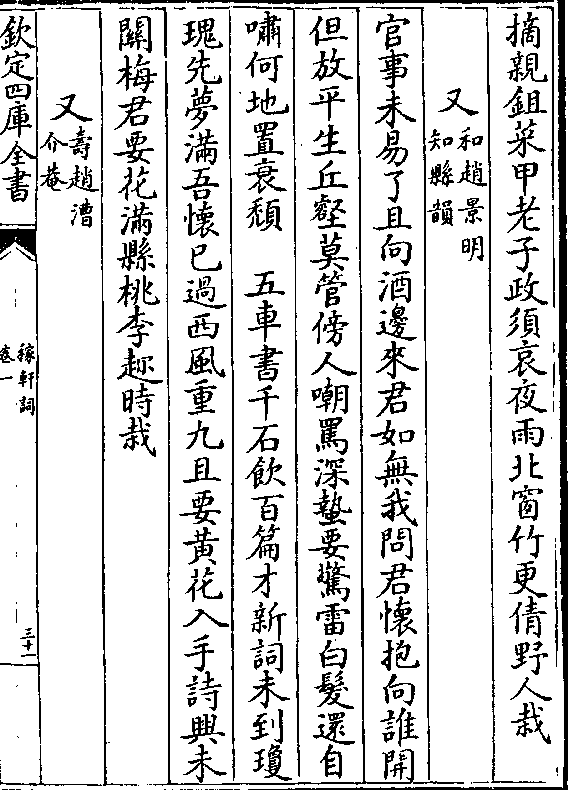 摘親鉏菜甲老子政須哀夜雨北窗竹更倩野人栽
又和趙景明知縣韻
官事未易了且向酒邊來君如無我問君懷抱向誰開
但放平生丘壑莫管傍人嘲罵深蟄要驚雷白髮還自
嘯何地置衰頽　五車書千石飲百篇才新詞未到瓊
瑰先夢滿吾懷已過西風重九且要黃花入手詩興未
關梅君要花滿縣桃李趂時栽
又壽趙漕介菴
欽定四庫全書
稼軒詞
卷一
三十一